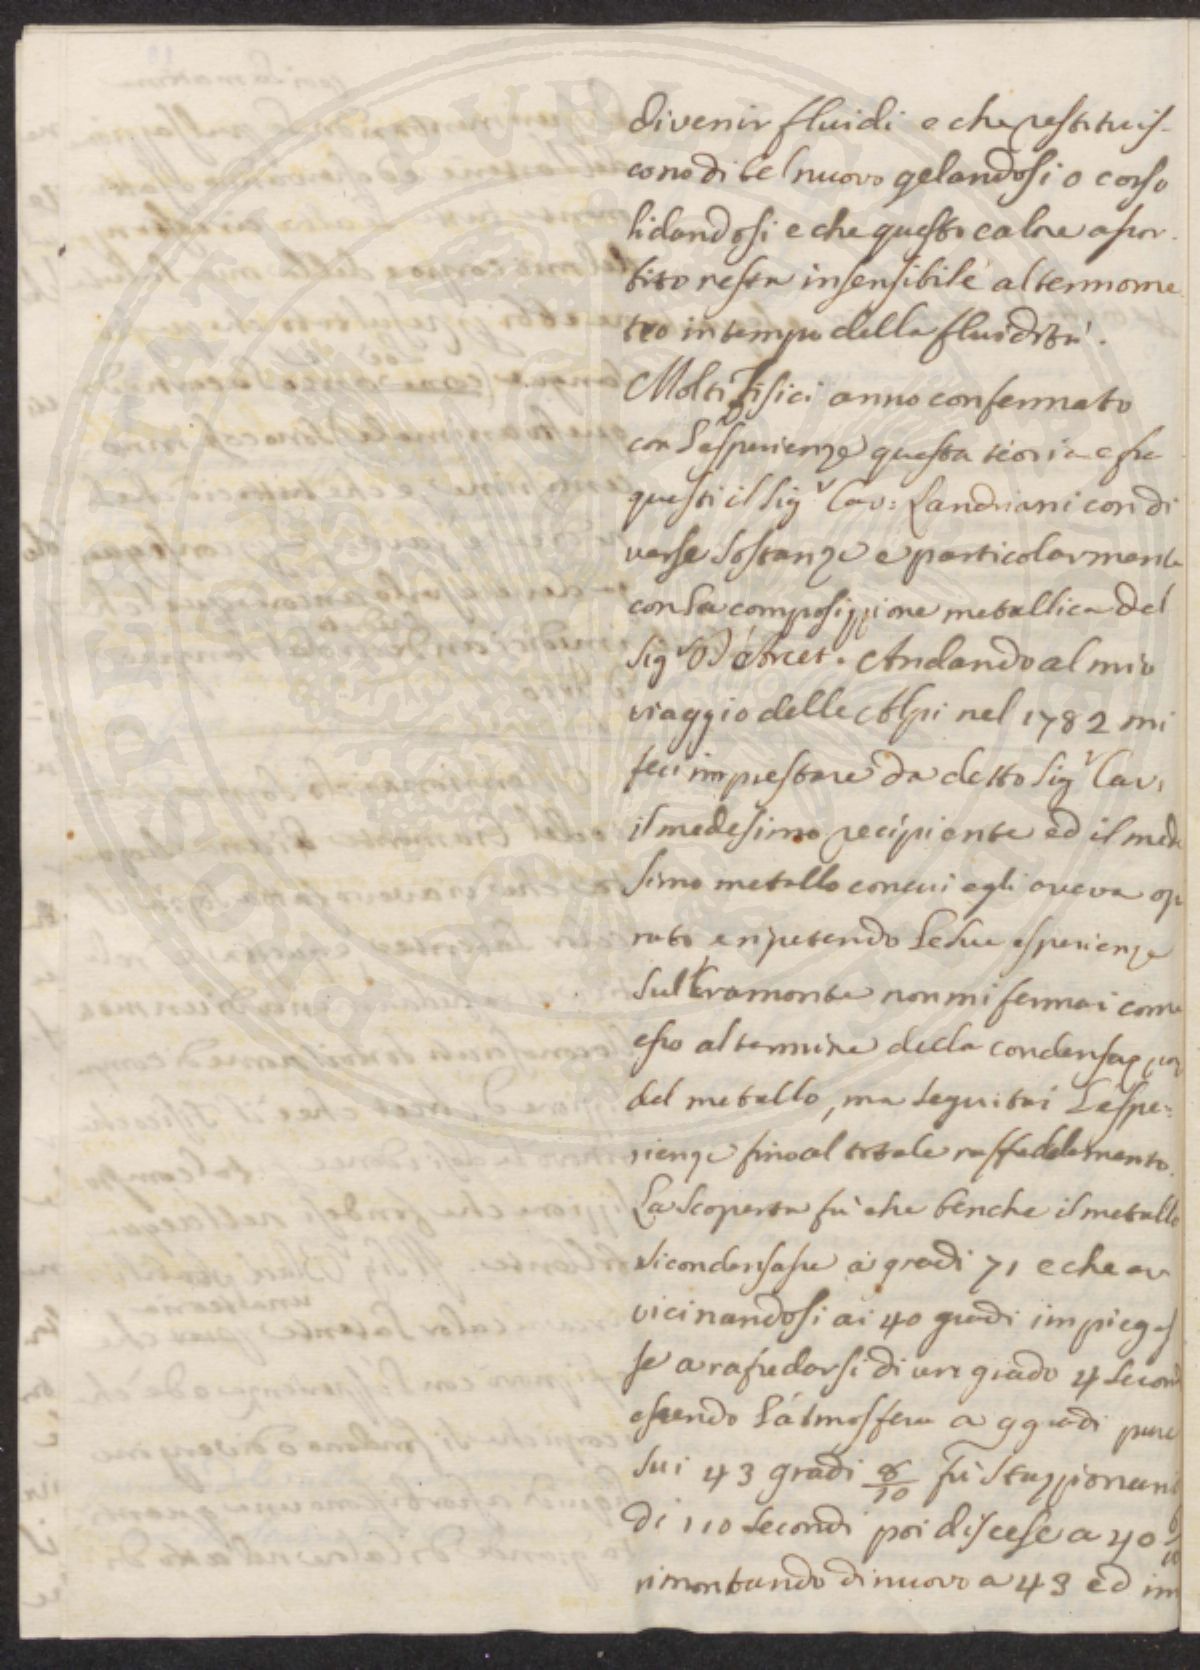 divenir fluidi e che restituis-
cono di bel nuovo gelandosi o conso
lidandosi e che questo calore asor-
bito resta insensibile al termome
tro in tempo della fluidità.
Molti Fisici anno confermato
con l'esperienze questa teoria e fra
questi il Sigr Cav: Landriani con di
verse sostanze e particolarmente
con la composizzione metallica del
Sigr D'Arcet. Andando al mio
viaggio delle Alpi nel 1782 mi
feci imprestare da detto Sigr Cav:
il medesimo recipiente ed il mede
simo metallo con cui egli aveva ope
rato e ripetendo le sue esperienze
sul Gramonte non mi fermai come
esso al termine della condensazzione
del metallo, ma seguitai l'espe-
rienze fino al totale raffredamento.
La scoperta fù che benche il metallo
si condensasse a gradi 71 e che av
vicinandosi ai 40 gradi impiegas
se a rafredarsi di un grado 4 secondi
essendo l'atmosfera a 9 gradi pure
sui 43 gradi 8/10 fù stazzionario
di 110 secondi poi discese a 40
rimontando di nuovo a 43 ed im